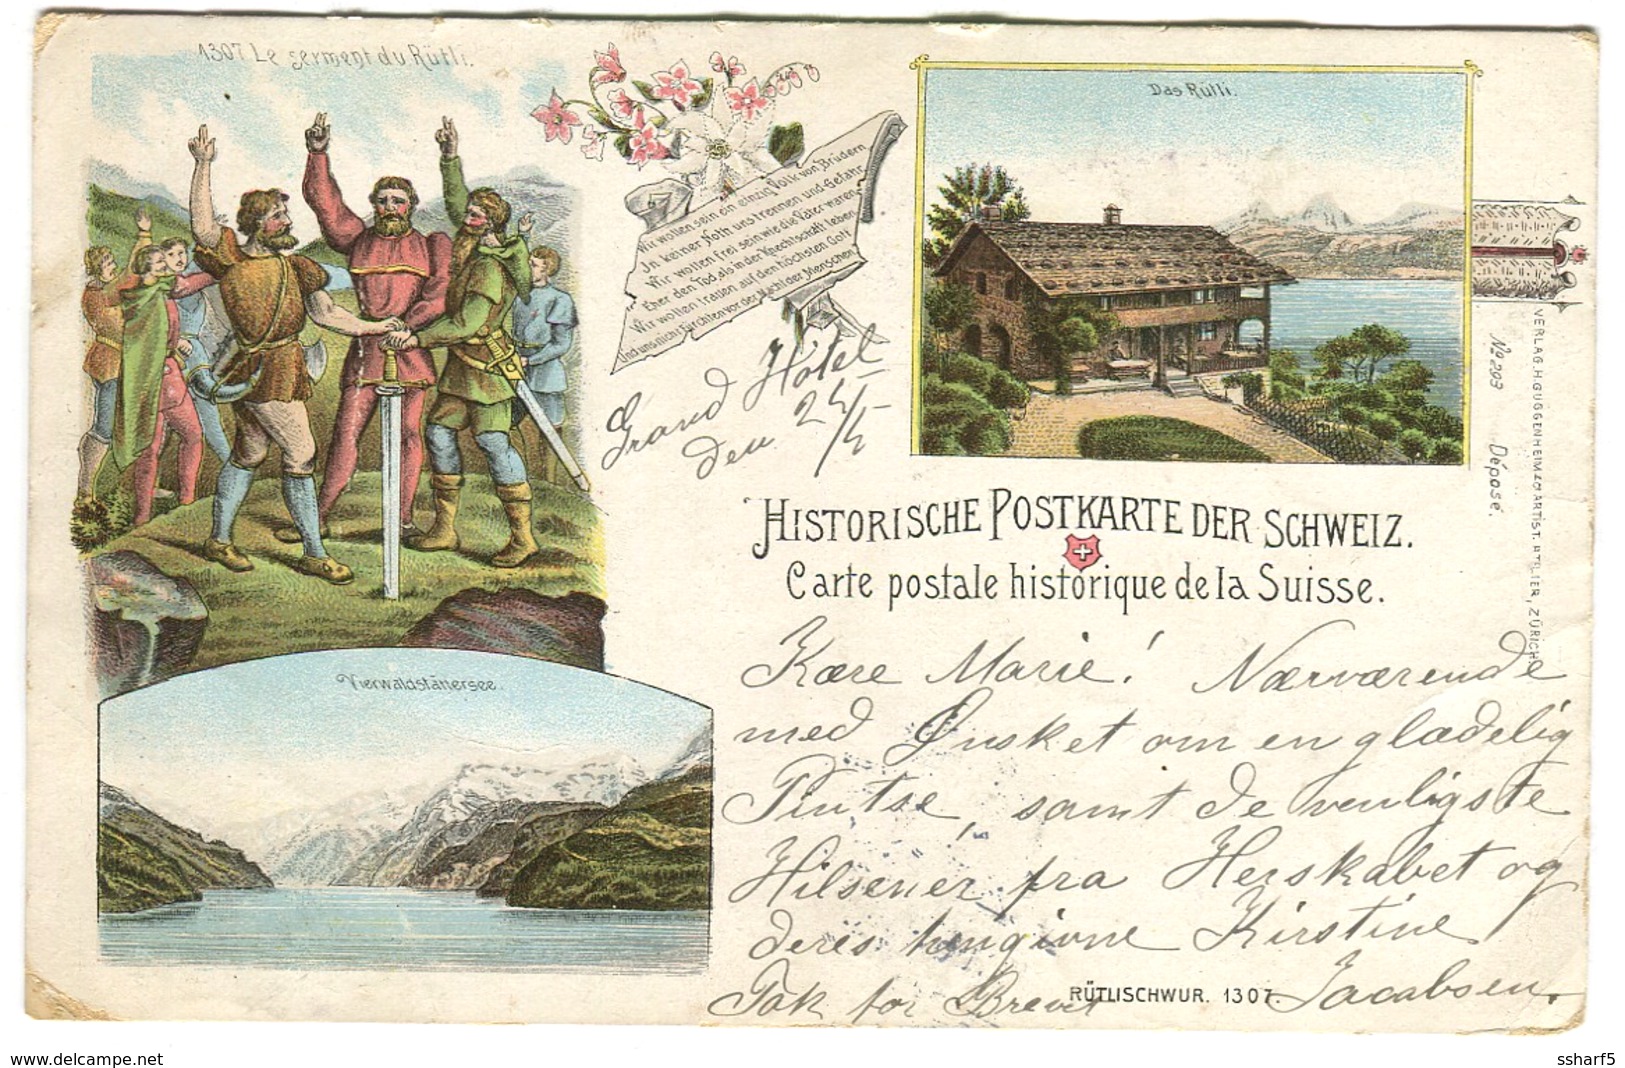 1307 Le serment du Rütli.
Wir wollen sein ein einzig Volk von Brüdern
In keiner Noth uns trennen und Gefahr
Wir wollen frei sein wie die Väter waren
Eher den Tod als in der Knechtschaft leben
Wir wollen trauen auf den höchsten Gott
Und uns nicht fürchten vor der Macht der Menschen
Das Rütli.
Grand Hôtel
den 24/5
VERLAG. H. GUGGENHEIM & Co ARTIST. ATELIER, ZÜRICH
No 293 Déposé.
HISTORISCHE POSTKARTE DER SCHWEIZ.
Carte postale historique de la Suisse.
Vierwaldstättersee.
Kære Marie! Nærværende
med Ønsket om en glædelig
Pintse, samt de venligste
Hilsener fra Herskabet og
deres hengivne Kirstine
Tak for Brevet Jacobsen.
RÜTLISCHWUR. 1307.
www.delcampe.net
ssharf5